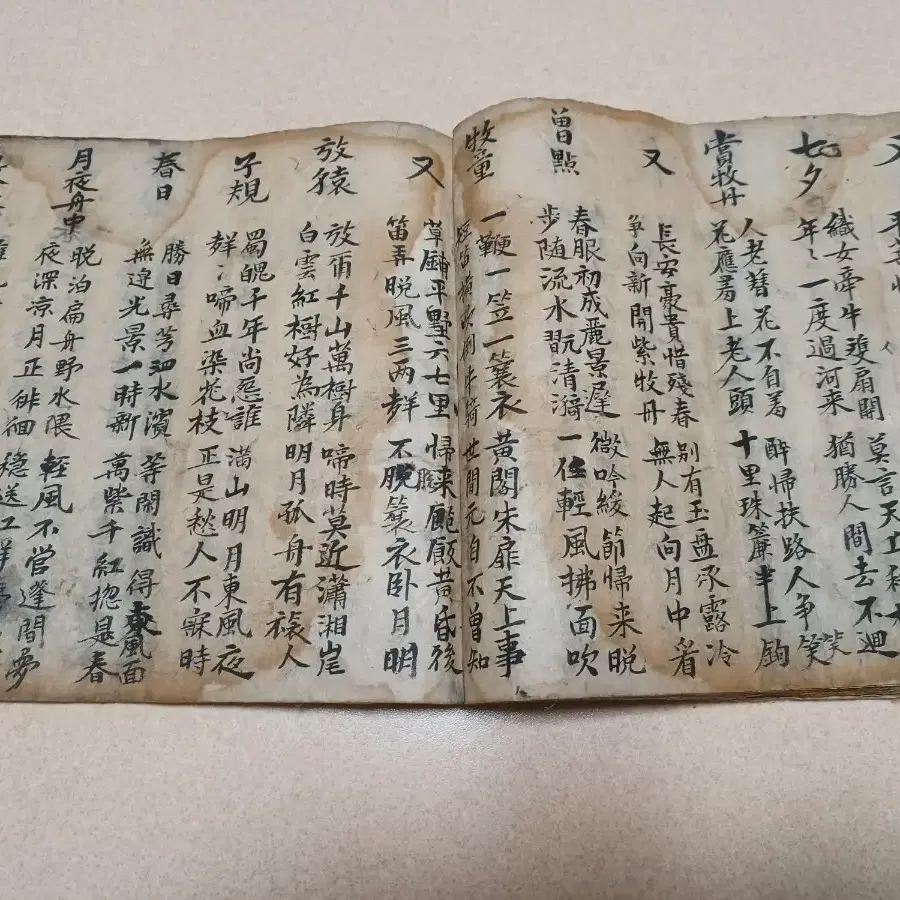 又
七夕
織女牽牛雙扇開 莫言天上稀
年〻一度過河来 猶勝人間去不廻
賞牧丹
人老簪花不自羞 醉帰扶路人争笑
花應羞上老人頭 十里珠簾半上鉤
又
長安豪貴惜殘春 別有玉盘承露冷
争向新開紫牧丹 無人起向月中看
曾點
春服初成麗景遲 微吟緩節帰来晩
步随流水翫清漪 一任輕風拂面吹
牧童
一鞭一笠一簑衣 黄閣朱扉天上事
短笛横吹倒来騎 世間元自不曾知
又
草鋪平野六七里 帰来飽飯黄昏後
笛弄晩風三两声 不脱簑衣卧月明
放猿
放爾千山萬樹身 啼時莫近瀟湘岸
白雲紅樹好為隣 明月孤舟有旅人
子規
蜀魄千年尚怨誰 满山明月東風夜
声〻啼血染花枝 正是愁人不寐時
春日
勝日尋芳泗水濱 等閑識得東風面
無邉光景一時新 萬紫千紅揔是春
月夜舟中
脱泊扁舟野水隈 輕風不管蓬間夢
夜深涼月正徘徊 穏送江声